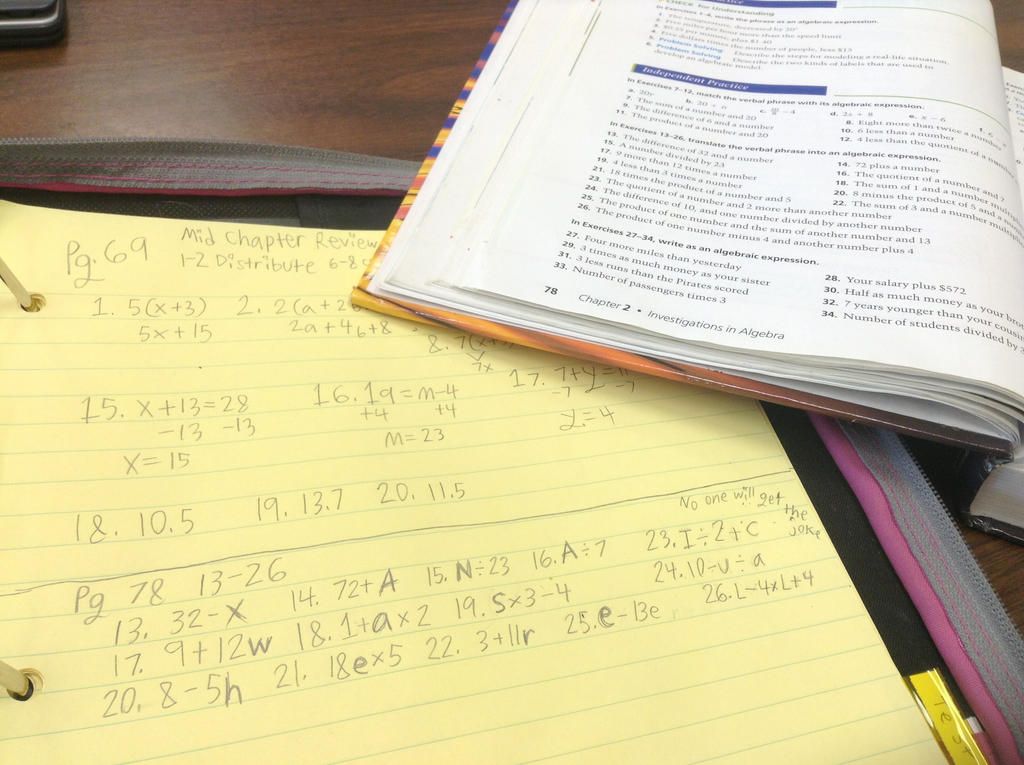 CHECK for Understanding
In Exercises 1–4, write the phrase as an algebraic expression.
1. The temperature, decreased by 20°
2. Five miles per hour more than the speed limit
3. $0.55 per minute, plus $1.40
4. Five dollars times the number of people, less $15
5. Problem Solving Describe the steps for modeling a real-life situation.
6. Problem Solving Describe the two kinds of labels that are used to
develop an algebraic model.
Independent Practice
In Exercises 7–12, match the verbal phrase with its algebraic expression.
a. 20y b. 20 + n d. 2s + 8 e. x − 6
7. The sum of a number and 20
8. Eight more than twice a number
9. The difference of 6 and a number
10. 6 less than a number
11. The product of a number and 20
12. 4 less than the quotient of a
In Exercises 13–26, translate the verbal phrase into an algebraic expression.
13. The difference of 32 and a number
14. 72 plus a number
15. A number divided by 23
16. The quotient of a number and 7
17. 9 more than 12 times a number
18. The sum of 1 and a number
19. 4 less than 3 times a number
20. 8 minus the product of 5 and a
21. 18 times the product of a number and 5
22. The sum of 3 and a number
23. The quotient of a number and 2 more than another number
24. The difference of 10, and one number divided by another number
25. The product of one number and the sum of another number and 13
26. The product of one number minus 4 and another number plus 4
In Exercises 27–34, write as an algebraic expression.
27. Four more miles than yesterday
28. Your salary plus $572
29. 3 times as much money as your sister
30. Half as much money as your
31. 3 less runs than the Pirates scored
32. 7 years younger than your
33. Number of passengers times 3
34. Number of students divided by
78 Chapter 2 • Investigations in Algebra
Pg. 69 Mid Chapter Review
1-2 Distribute 6-8
1. 5(x+3) 2. 2(a+2
5x+15 2a+4b+8
8. 7(x+
7x
15. x+13=28 16. 19=m-4 17. 7+y=11
-13 -13 +4 +4 -7 -7
x=15 m=23 y=4
18. 10.5 19. 13.7 20. 11.5
No one will get the joke
Pg 78 13-26
13. 32-x 14. 72+A 15. N÷23 16. A÷7 23. I÷2+C
17. 9+12w 18. 1+a×2 19. s×3-4 24. 10-u÷a
20. 8-5h 21. 18e×5 22. 3+11r 25. e-13e 26. L-4×L+4
Test